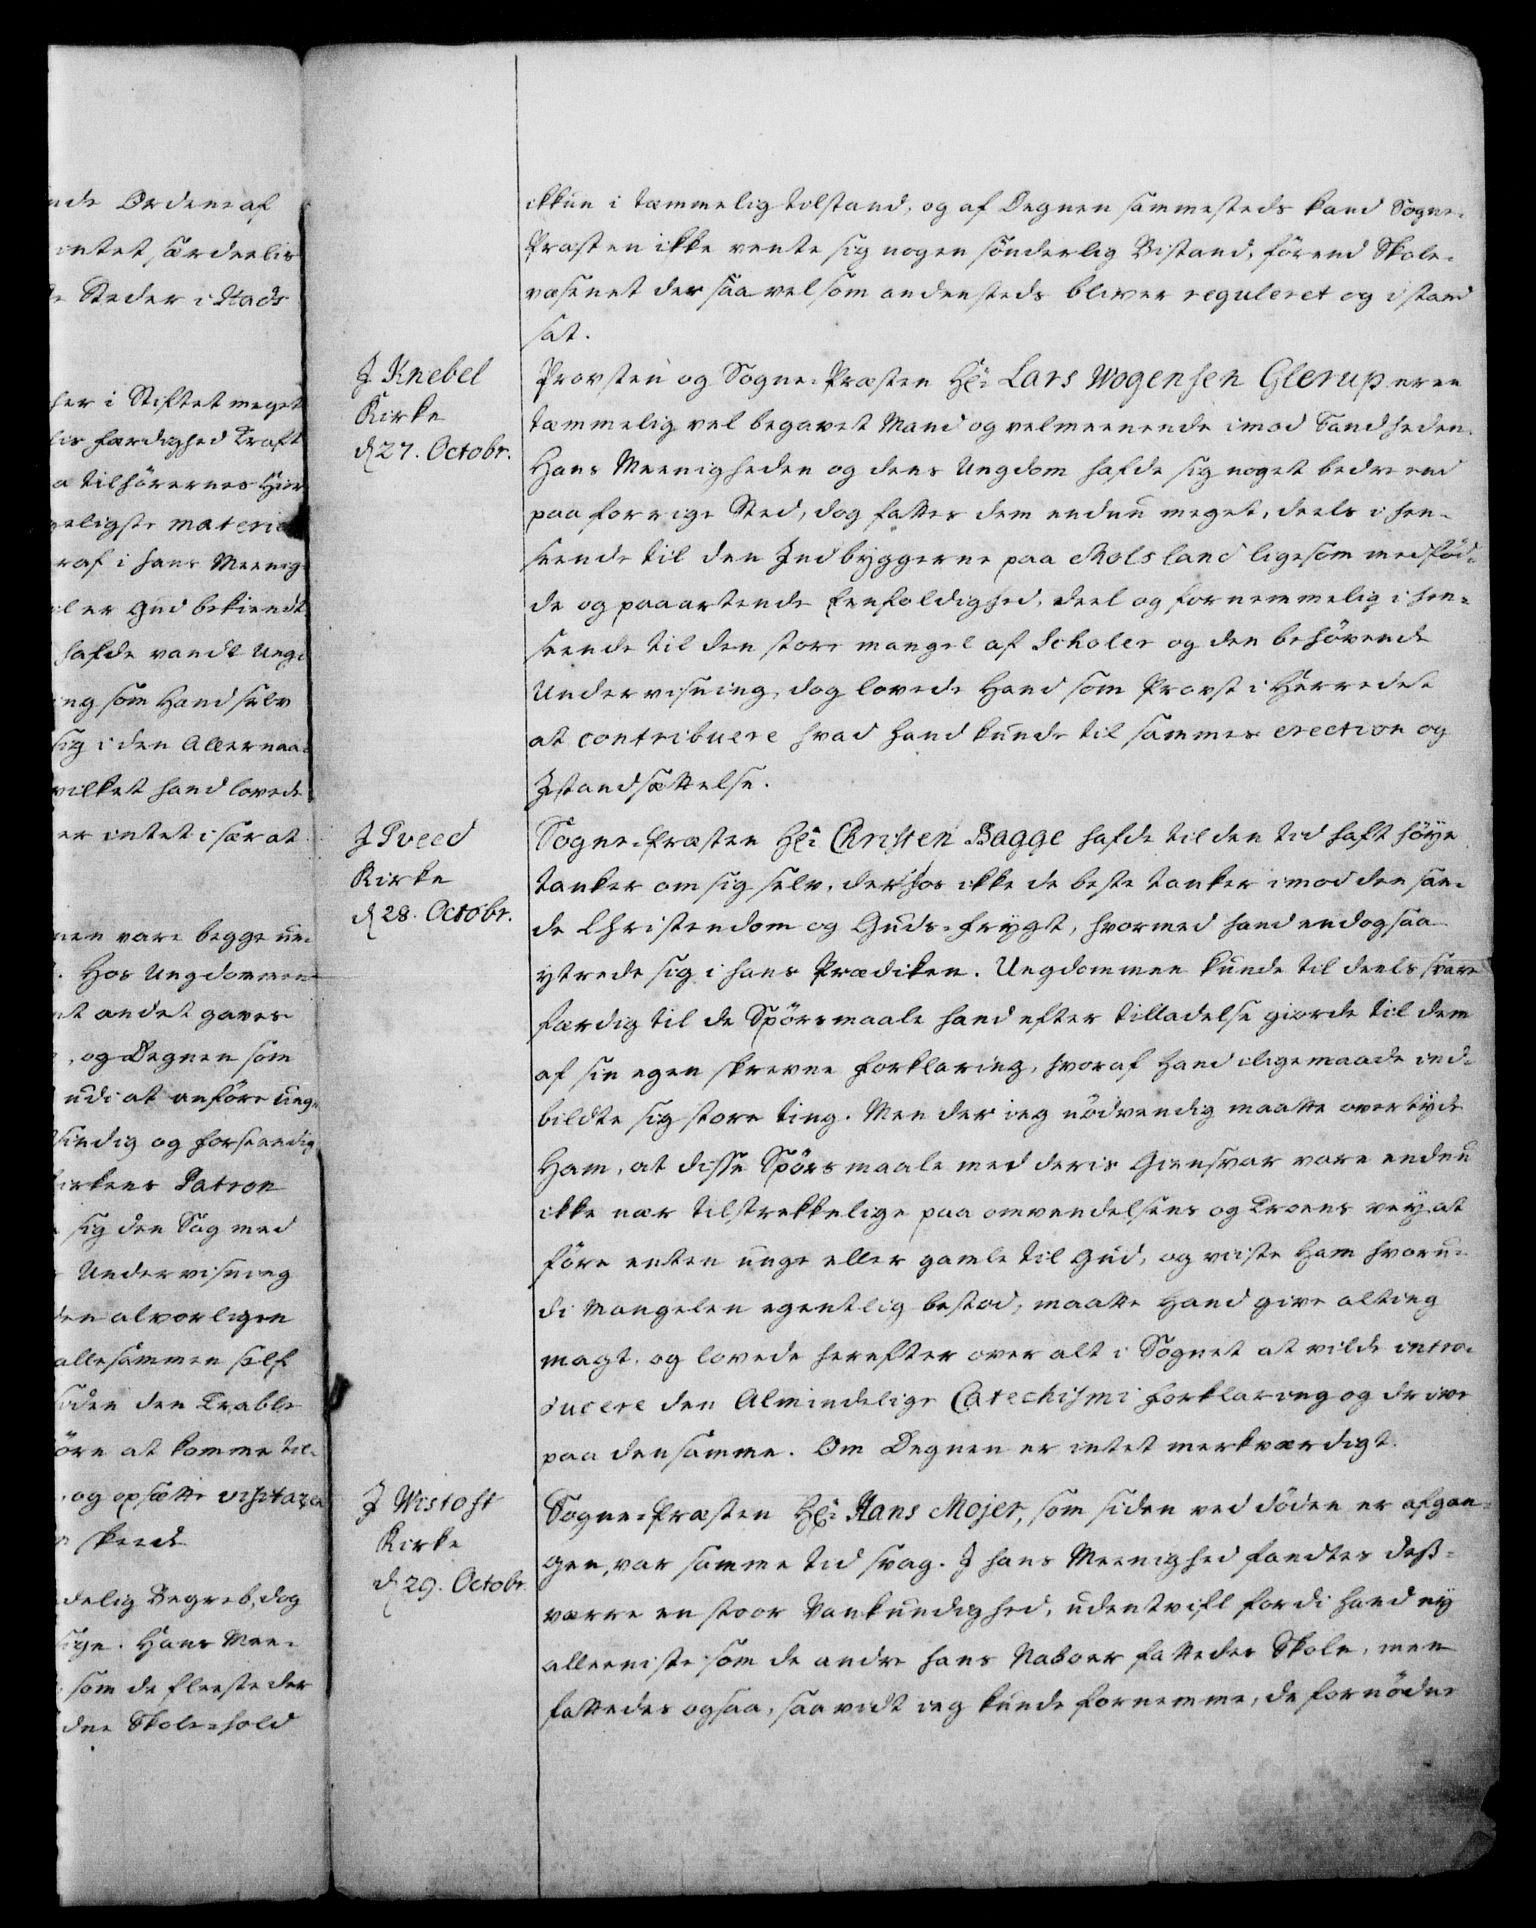 nde Ordene af
intet særdeelis
te Steder i Stads
her i Stiftet meget
lis færdighed Kraft
a tilhörernes Hier
geligste materie
raf i hans Meenig
el er Gud bekiendt
hafde vandt Unge
ing som Hand selv
sig i den Allernaa-
vilket hand lovede
er intet i sær at
nen vare begge un-
. Hos Ungdommen
nt andet gaves
, og Degnen som
udi at anföre ung-
sindig og forstandig
Kirkens Patron
sig den Sag med
Undervisning
den alvorligen
allesammen self
siden den Trable
öre at komme til-
, og opsætte visitazen
n skeede
delig Begreb, dog
sige. Hans Mee-
som de fleeste der
den Skole-hold
ikkun i temmelig tilstand, og af Degnen sammesteds kand Sogne-
Præsten ikke vente sig nogen sönderlig Bistand, förend Skole-
væsenet der saavelsom andensteds bliver reguleret og i stand
sat.
J Knebel
Kirke
d 27. Octobr.
Provsten og Sogne-Præsten Hr: Lars Wogensen Glerup er en
temmelig vel begavet Mand og velmeenende imod Sandheden.
Hans Meenigheden og dens Ungdom hafde sig noget bedre end
paa forrige Sted, dog fattes dem endnu meget, deels i hen-
seende til den Indbyggerne paa Molsland ligesom medföd-
de og paaartende Eenfoldighed, deel og fornemmelig i hen-
seende til den store mangel af Scholer og den behövende
Undervisning, dog lovede Hand som Provst i Herredet
at contribuere hvad Hand kunde til sammes erection og
Istandsættelse.
J Tveed
Kirke
d 28. Octobr.
Sogne-Præsten Hr: Christen Bagge hafde til den tid haft höye
tanker om sig selv, derhos ikke de beste tanker imod den san-
de Christendom og Guds-frygt, hvormed hand endogsaa
yttrede sig i hans Prædiken. Ungdommen kunde til deels svare
færdig til de Spörsmaale hand efter tilladelse giorde til dem
af sin egen skrevne forklaring, hvoraf Hand iligemaade ind-
bildte sig store ting. Men der ieg nödvendig maatte overtyde
Ham, at disse Spörsmaale med deris Giensvar vare endnu
ikke nær tilstrekkelige paa omvendelsens og Troens vey at
före enten unge eller gamle til Gud, og viiste Ham hvoru-
di Mangelen egentlig bestod, maatte Hand give alting
magt, og lovede herefter over alt i Sognet at vilde intro-
ducere den Almindelige Catechismi forklaring og drive
paa den samme. Om Degnen er intet merkværdigt.
J Wistoft
Kirke
d 29. Octobr.
Sogne-Præsten Hr: Hans Mojer, som siden ved döden er afgan-
gen, var samme tid svag. I hans Meenighed fandtes deß-
værre en stoor Vankundighed, udentvifl fordi hand ey
alleeniste som de andre hans Naboer fattedes Skole, men
fattedes ogsaa, saavidt ieg kunde fornemme, de fornödne